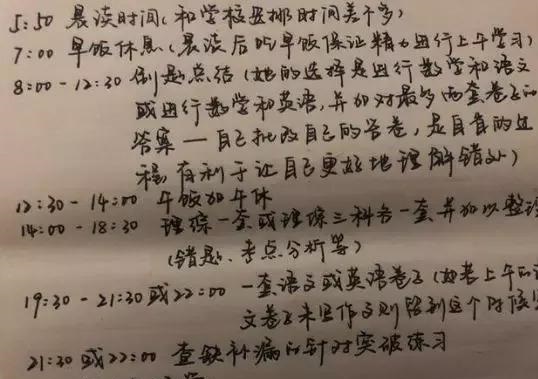 5:50 晨读时间(和学校安排时间差不多)
7:00 早饭休息(晨读后吃早饭保证精力进行上午学习)
8:00-12:30 刷题总结(她的选择是进行数学和语文
或进行数学和英语,并加对最多两套卷子的
答案—自己批改自己的答卷,是自省的过
程,有利于让自己更好地理解错处)
12:30-14:00 午饭加午休
14:00-18:30 理综一套或理综三科各一套并加以整理
(错题、考点分析等)
19:30-21:30或22:00 一套语文或英语卷子(如若上午的语
文卷子未写作文则留到这个时候
21:30或22:00 查缺补漏的针对突破练习